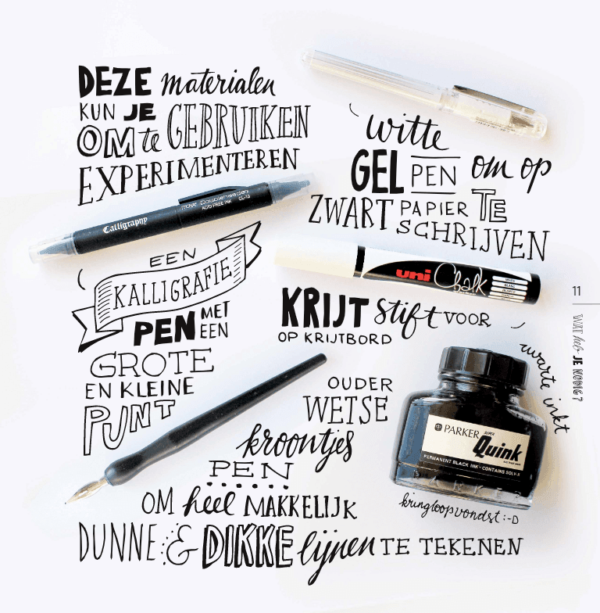 DEZE materialen
KUN JE
OM te GEBRUIKEN
EXPERIMENTEREN
witte
GEL PEN om op
ZWART PAPIER TE
SCHRIJVEN
Calligraphy
EEN
KALLIGRAFIE
PEN MET EEN
GROTE
EN KLEINE
PUNT
uni Chalk
KRIJT stift VOOR
OP KRIJTBORD
11
WAT heb JE NODIG?
zwarte inkt
PARKER
Quink
PERMANENT BLACK INK - CONTAINS SOLV-X
kringloopvondst :-D
OUDER
WETSE
kroontjes
PEN
OM heel MAKKELIJK
DUNNE & DIKKE lijnen TE TEKENEN